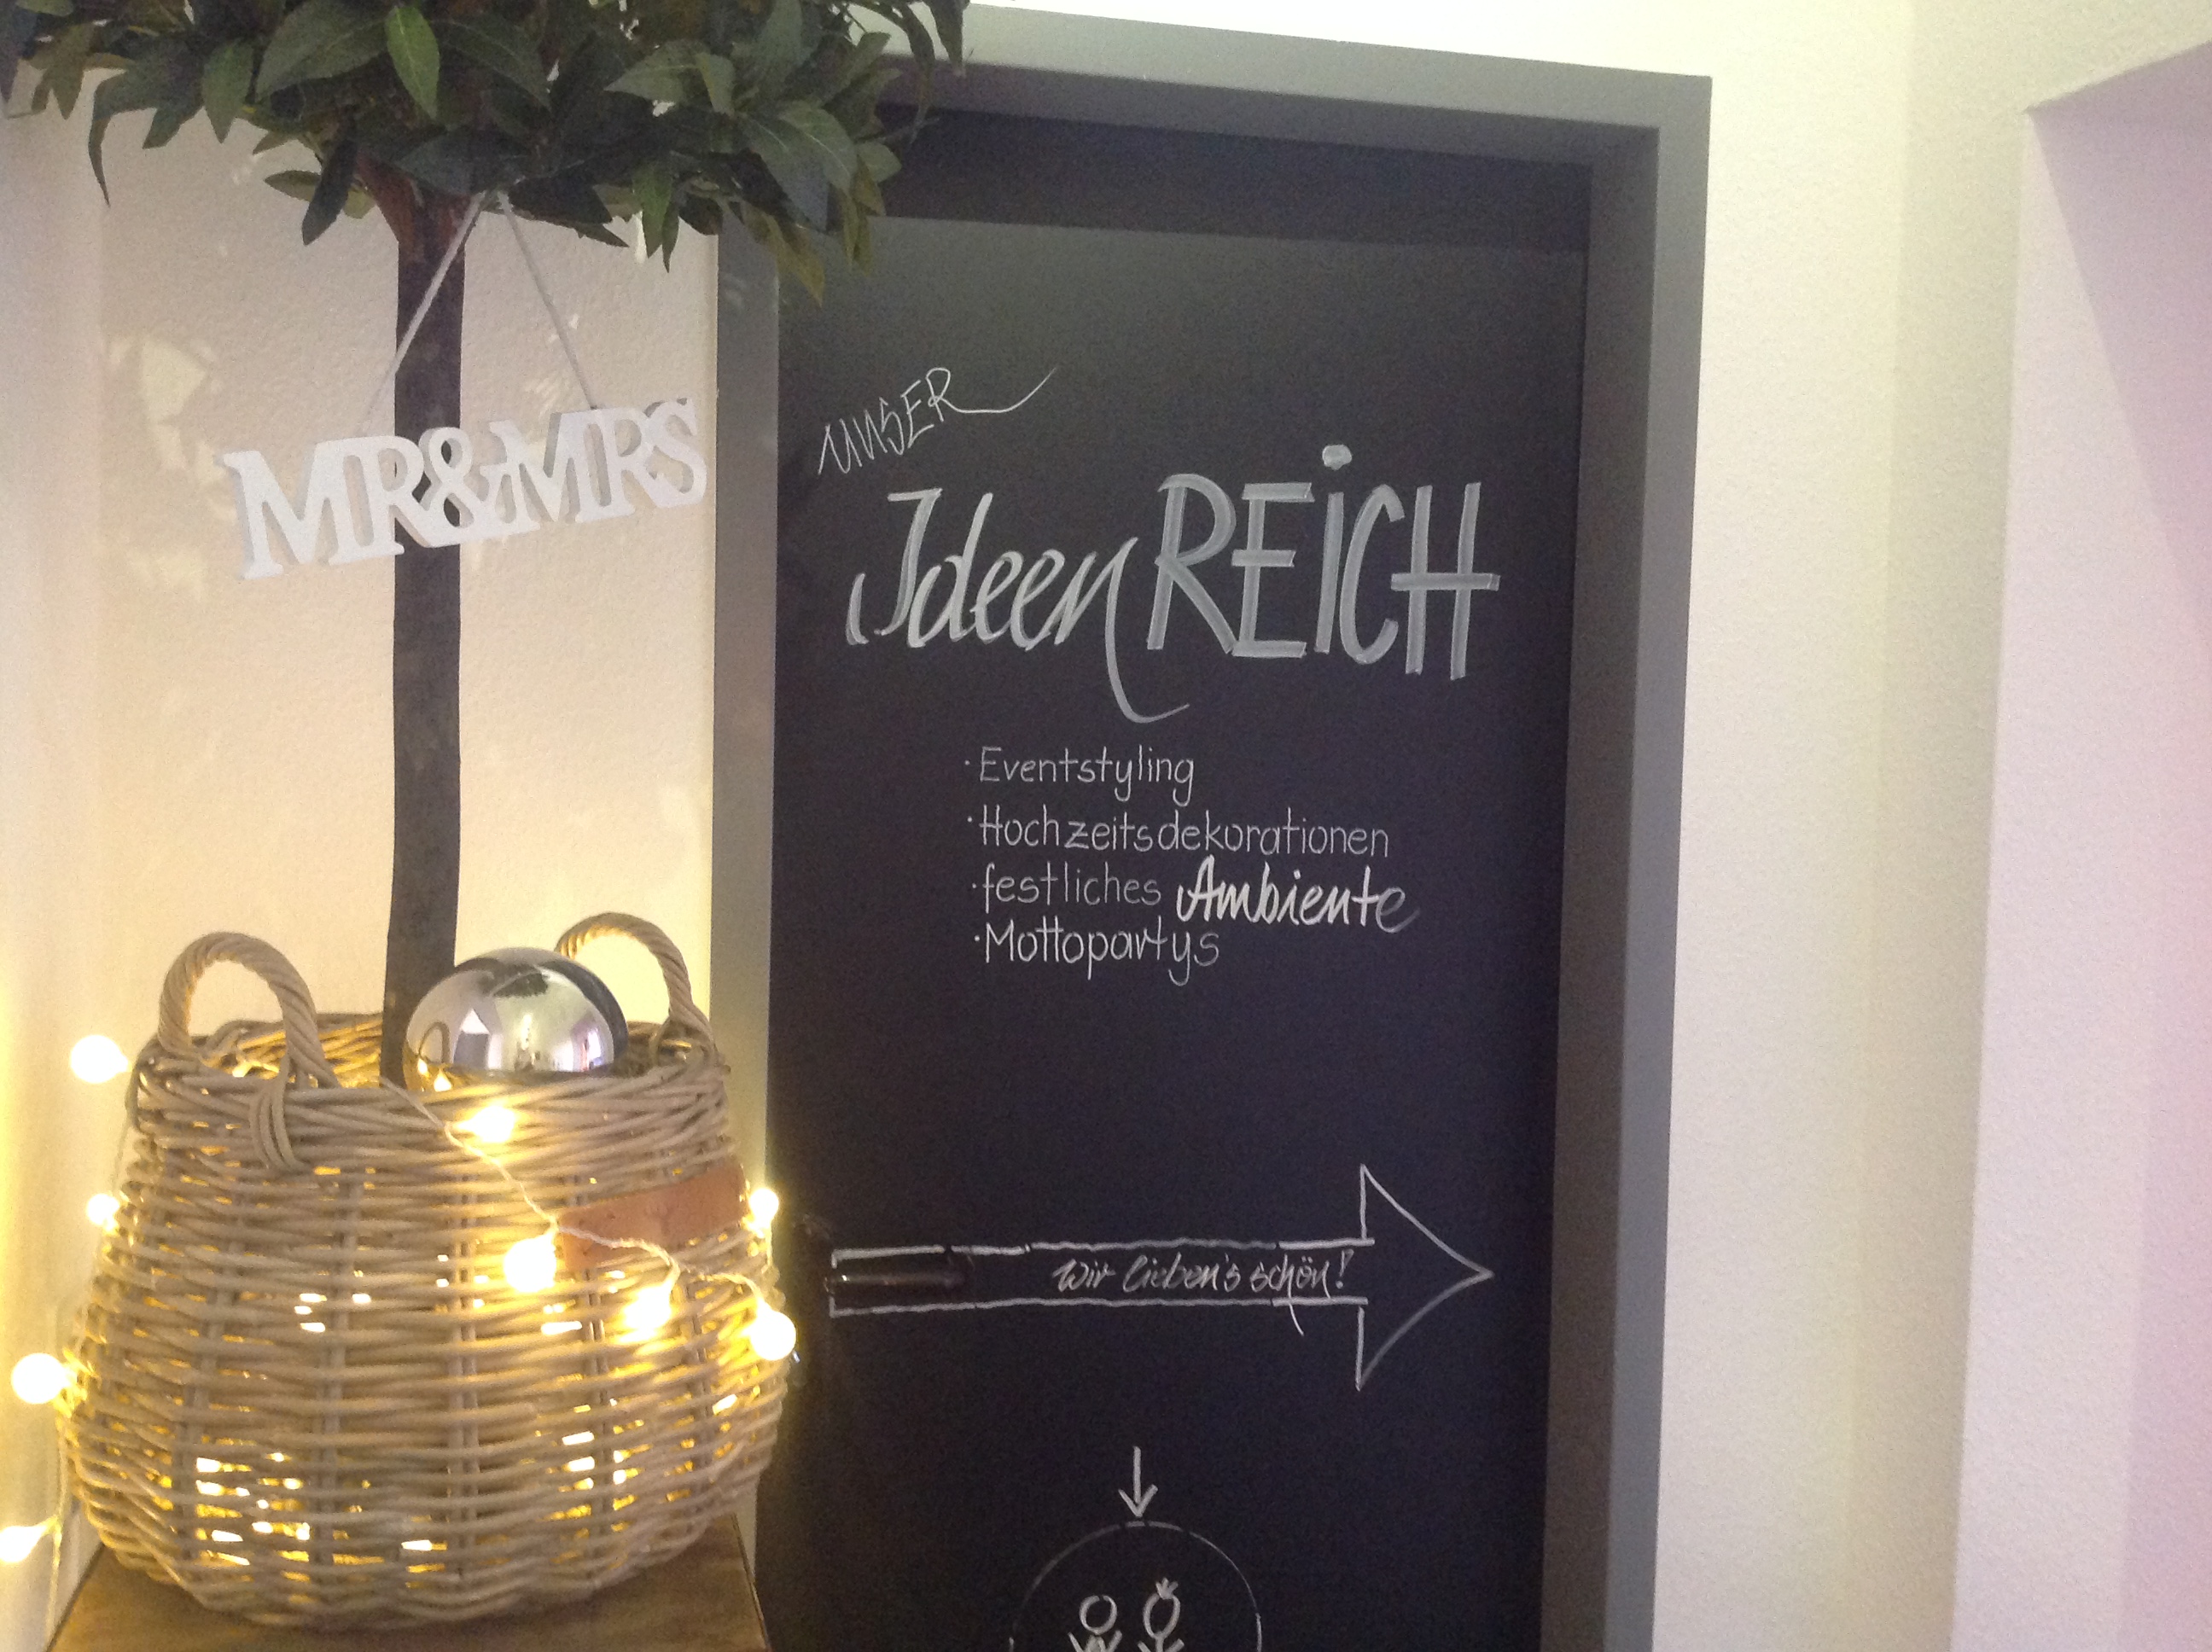 MR&MRS
UNSER
IdeenREiCH
· Eventstyling
· Hochzeitsdekorationen
· festliches Ambiente
· Mottopartys
Wir lieben's schön!